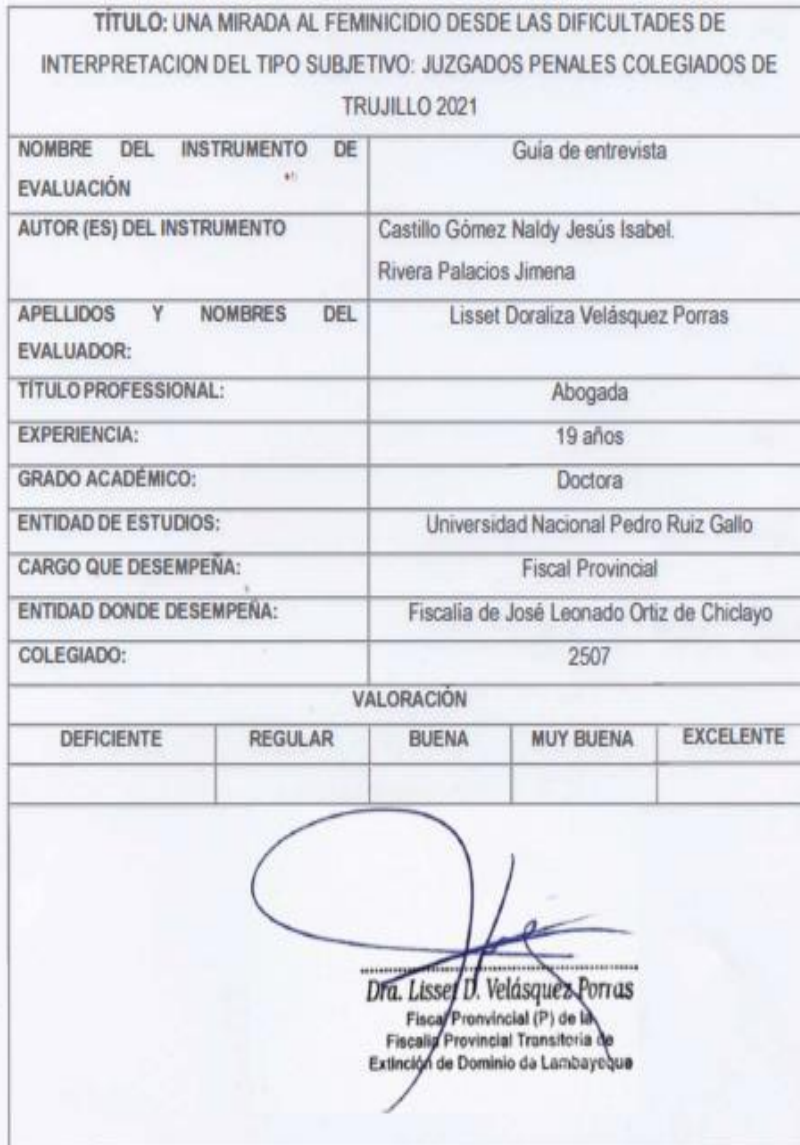 TÍTULO: UNA MIRADA AL FEMINICIDIO DESDE LAS DIFICULTADES DE
INTERPRETACION DEL TIPO SUBJETIVO: JUZGADOS PENALES COLEGIADOS DE
TRUJILLO 2021
NOMBRE DEL INSTRUMENTO DE
EVALUACIÓN
Guía de entrevista
AUTOR (ES) DEL INSTRUMENTO
Castillo Gómez Naldy Jesús Isabel.
Rivera Palacios Jimena
APELLIDOS Y NOMBRES DEL
EVALUADOR:
Lisset Doraliza Velásquez Porras
TÍTULO PROFESSIONAL:
Abogada
EXPERIENCIA:
19 años
GRADO ACADÉMICO:
Doctora
ENTIDAD DE ESTUDIOS:
Universidad Nacional Pedro Ruiz Gallo
CARGO QUE DESEMPEÑA:
Fiscal Provincial
ENTIDAD DONDE DESEMPEÑA:
Fiscalía de José Leonado Ortiz de Chiclayo
COLEGIADO:
2507
VALORACIÓN
DEFICIENTE REGULAR BUENA MUY BUENA EXCELENTE
Dra. Lisset D. Velásquez Porras
Fiscal Pronvincial (P) de la
Fiscalía Provincial Transitoria de
Extinción de Dominio de Lambayeque